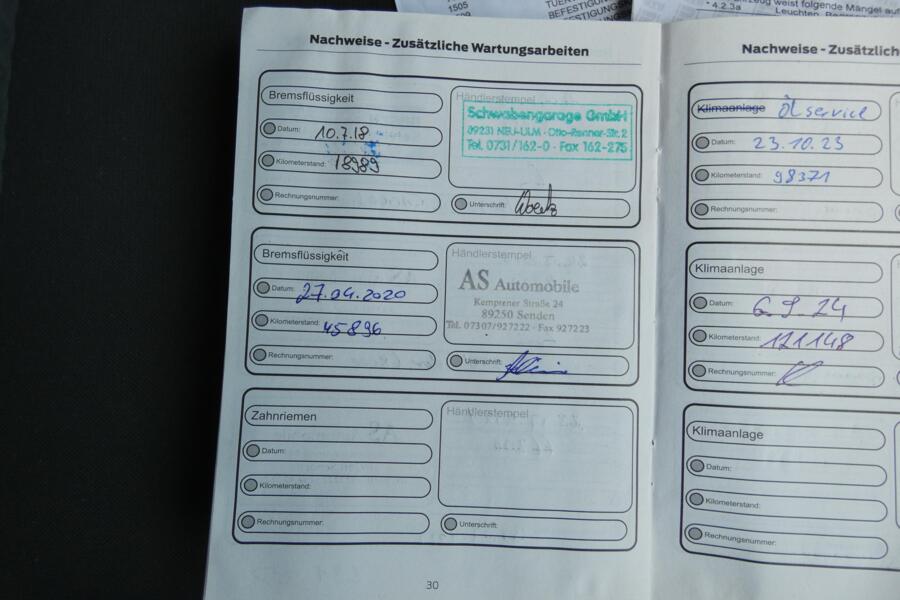 1505
BEFESTIGUNG
BEFESTIGUNGS
weist folgende Mängel auf
4.2.3a
Leuchten,
Nachweise - Zusätzliche Wartungsarbeiten
Bremsflüssigkeit
Datum: 10.7.18
Kilometerstand: 18989
Rechnungsnummer:
Händlerstempel
Schwabengarage GmbH
89231 NEU-ULM · Otto-Renner-Str. 2
Tel. 0731/162-0 · Fax 162-275
Unterschrift:
Bremsflüssigkeit
Datum: 27.04.2020
Kilometerstand: 45896
Rechnungsnummer:
Händlerstempel
AS Automobile
Kemptener Straße 24
89250 Senden
Tel. 07307/927222 · Fax 927223
Unterschrift:
Zahnriemen
Datum:
Kilometerstand:
Rechnungsnummer:
Händlerstempel
Unterschrift:
30
Nachweise - Zusätzlich
Klimaanlage Ölservice
Datum: 23.10.23
Kilometerstand: 98371
Rechnungsnummer:
Klimaanlage
Datum: 6.9.24
Kilometerstand: 121148
Rechnungsnummer:
Klimaanlage
Datum:
Kilometerstand:
Rechnungsnummer: